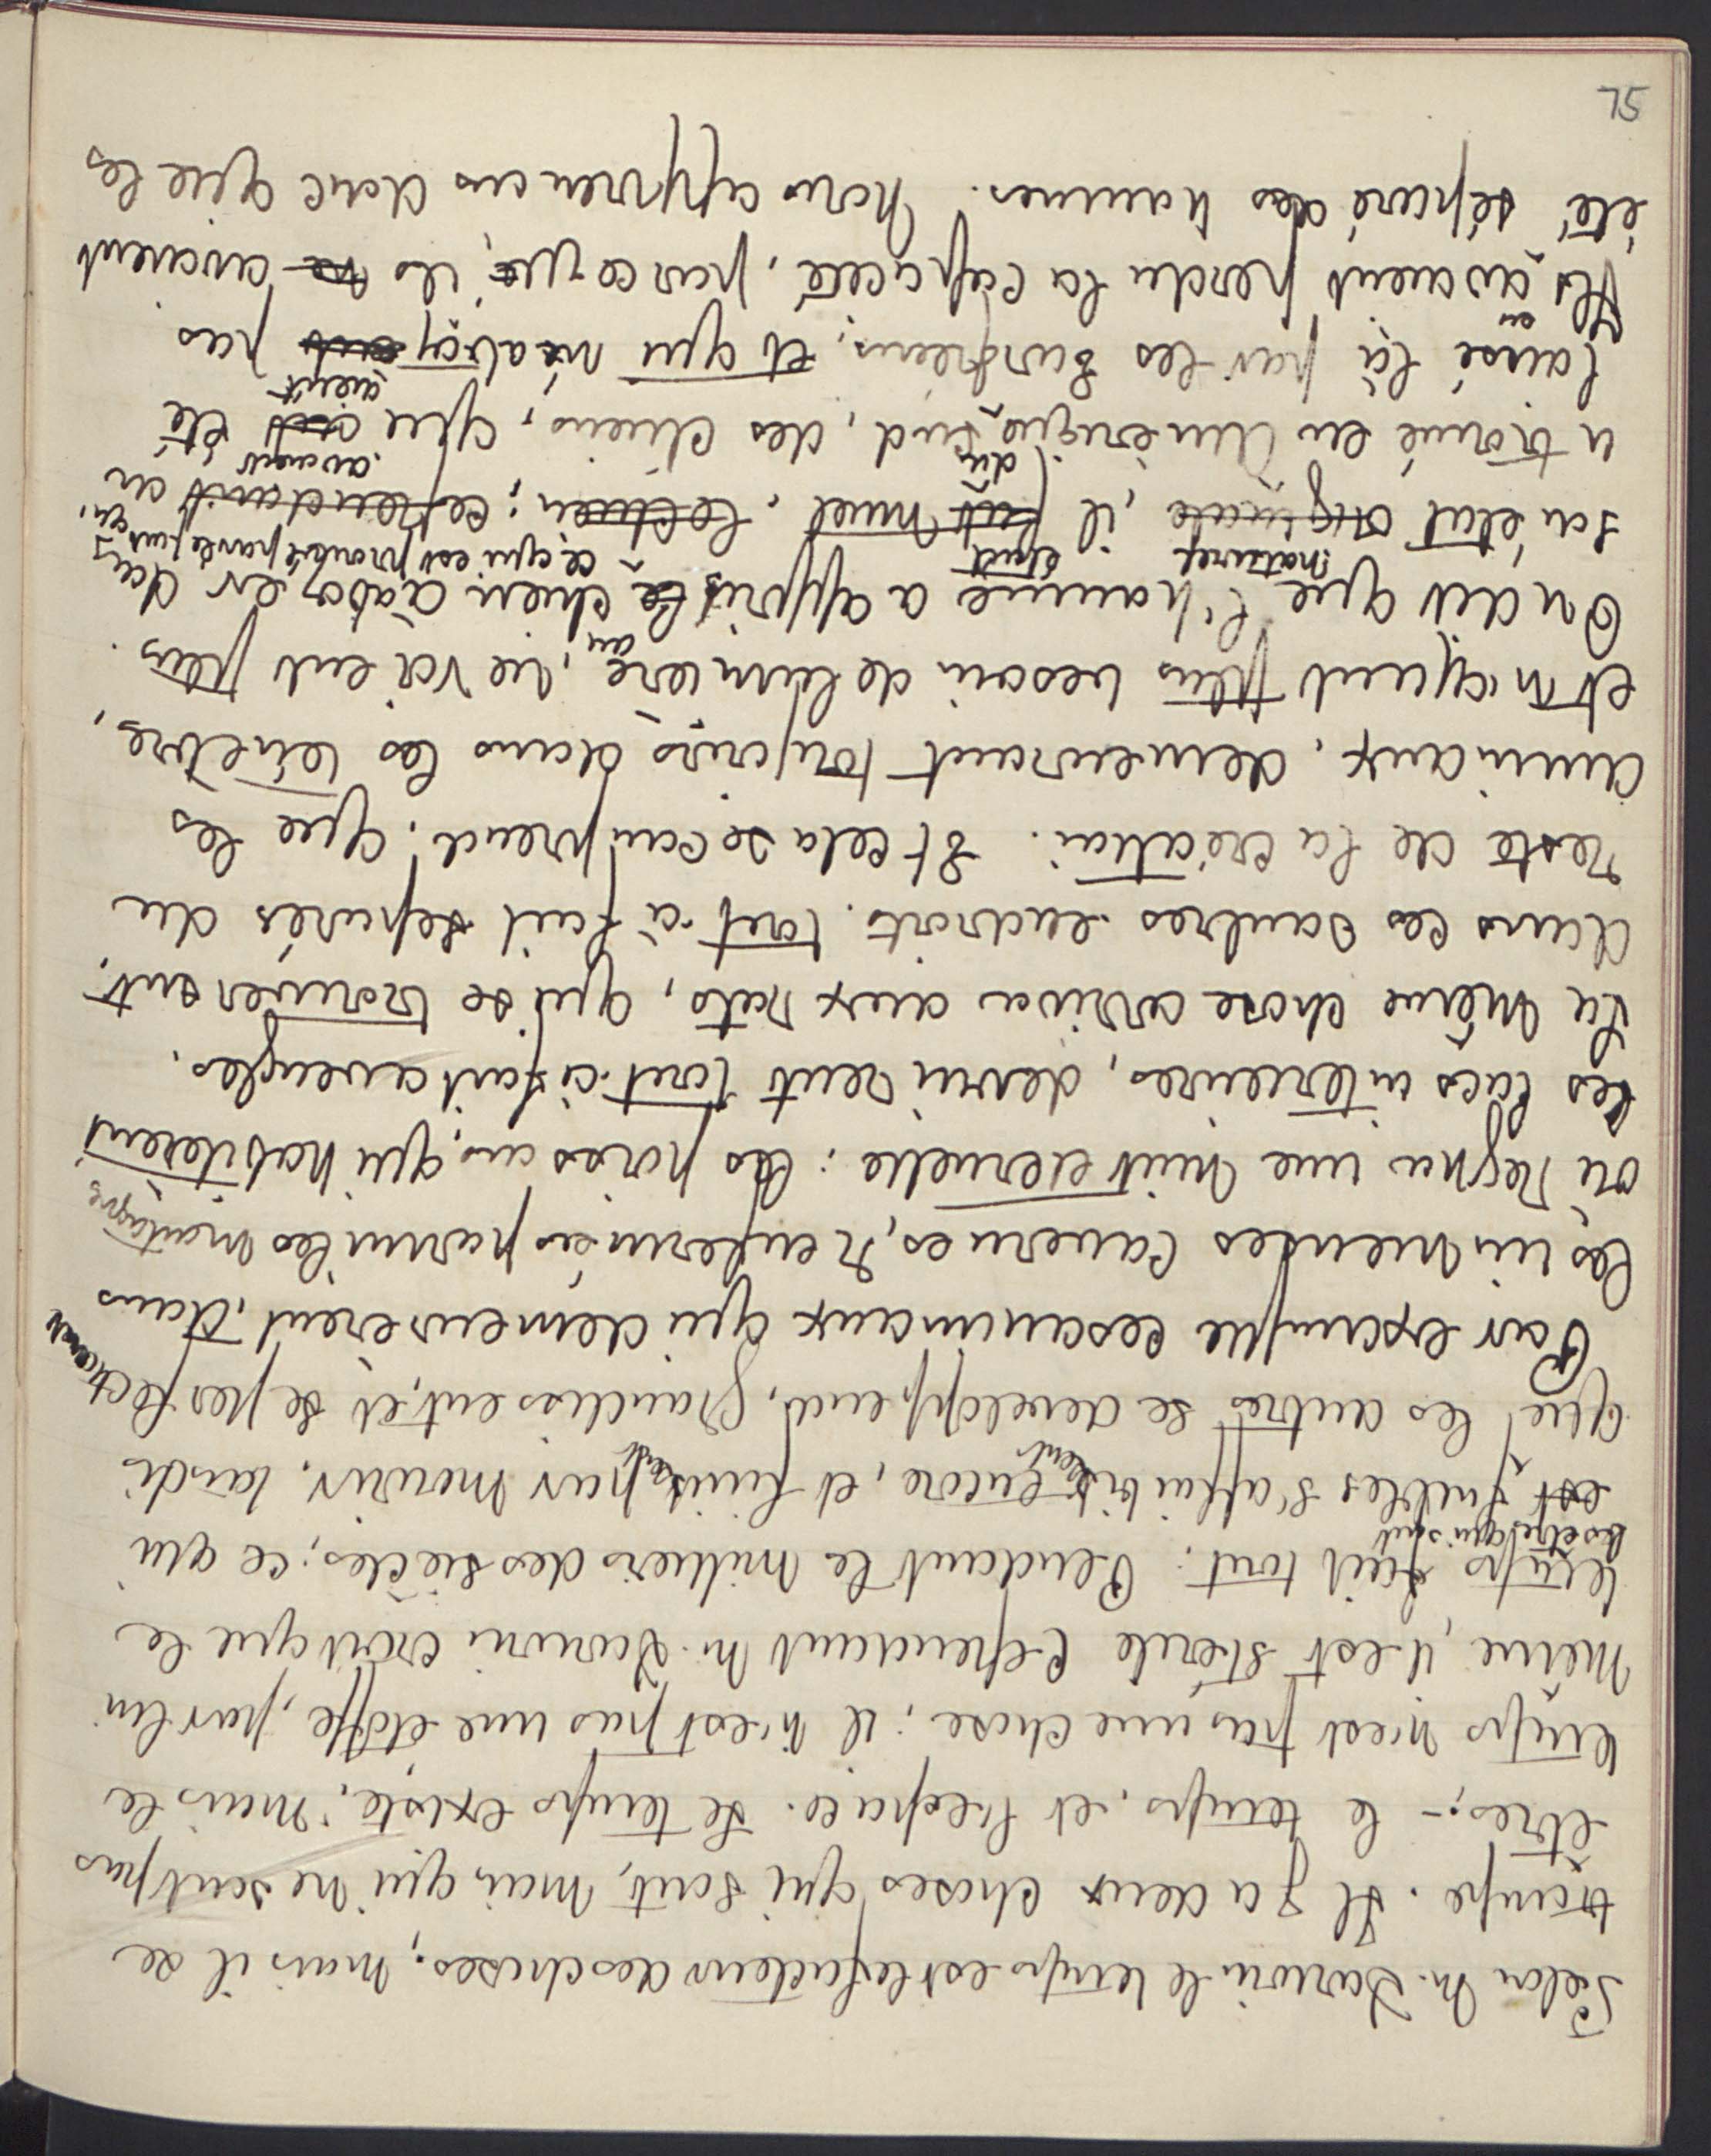 Selon M. Darwin le temps est le facteur des choses; mais il se
trompe. Il y a deux choses qui sont, mais qui ne sont pas
êtres; - le temps, et l'espace. Le temps existe; mais le
temps n'est pas une chose; il n'est pas une étoffe, par lui
même, il est stérile Cependant M. Darwin croit que le
temps fait tout: Pendant le milliers des siècles; ce qui
les êtres qui sont
est faibles s'affaiblissent encore, et finissent par mourir, tandis
que les autres se developpent, grandissent, et se perfectionnent
Par example les animaux qui demeurèrent, dans
les immenses cavernes, renfermées parmi les montagnes
où regna une nuit eternelle: les poissons, qui habitèrent
les lacs interieures, devinrent tout-à-fait aveugles.
La même chose arriva aux rats, qui se trouvèrent
dans les sombres endroits. tout-à-fait separés du
reste de la création. Et cela se comprend; que les
animaux, demeurant toujours dans les ténèbre,
et n'ayant plus besoin de lumière, ne voient plus.
On dit que l'homme a appris au chien à aboyer dans
naturel était ce qui est prouvé par le fait qu'
son état originale, il fut muet. Le chien; cependant on
a trouvé en Amérique du Sud, des chiens, que avaient été
laissé là par les Européens, et qui n'aboyaient pas
Ils en avaient perdu la capacité, parce que, ils ne avaient
été séparé des hommes. Nous apprenons donc que les
75